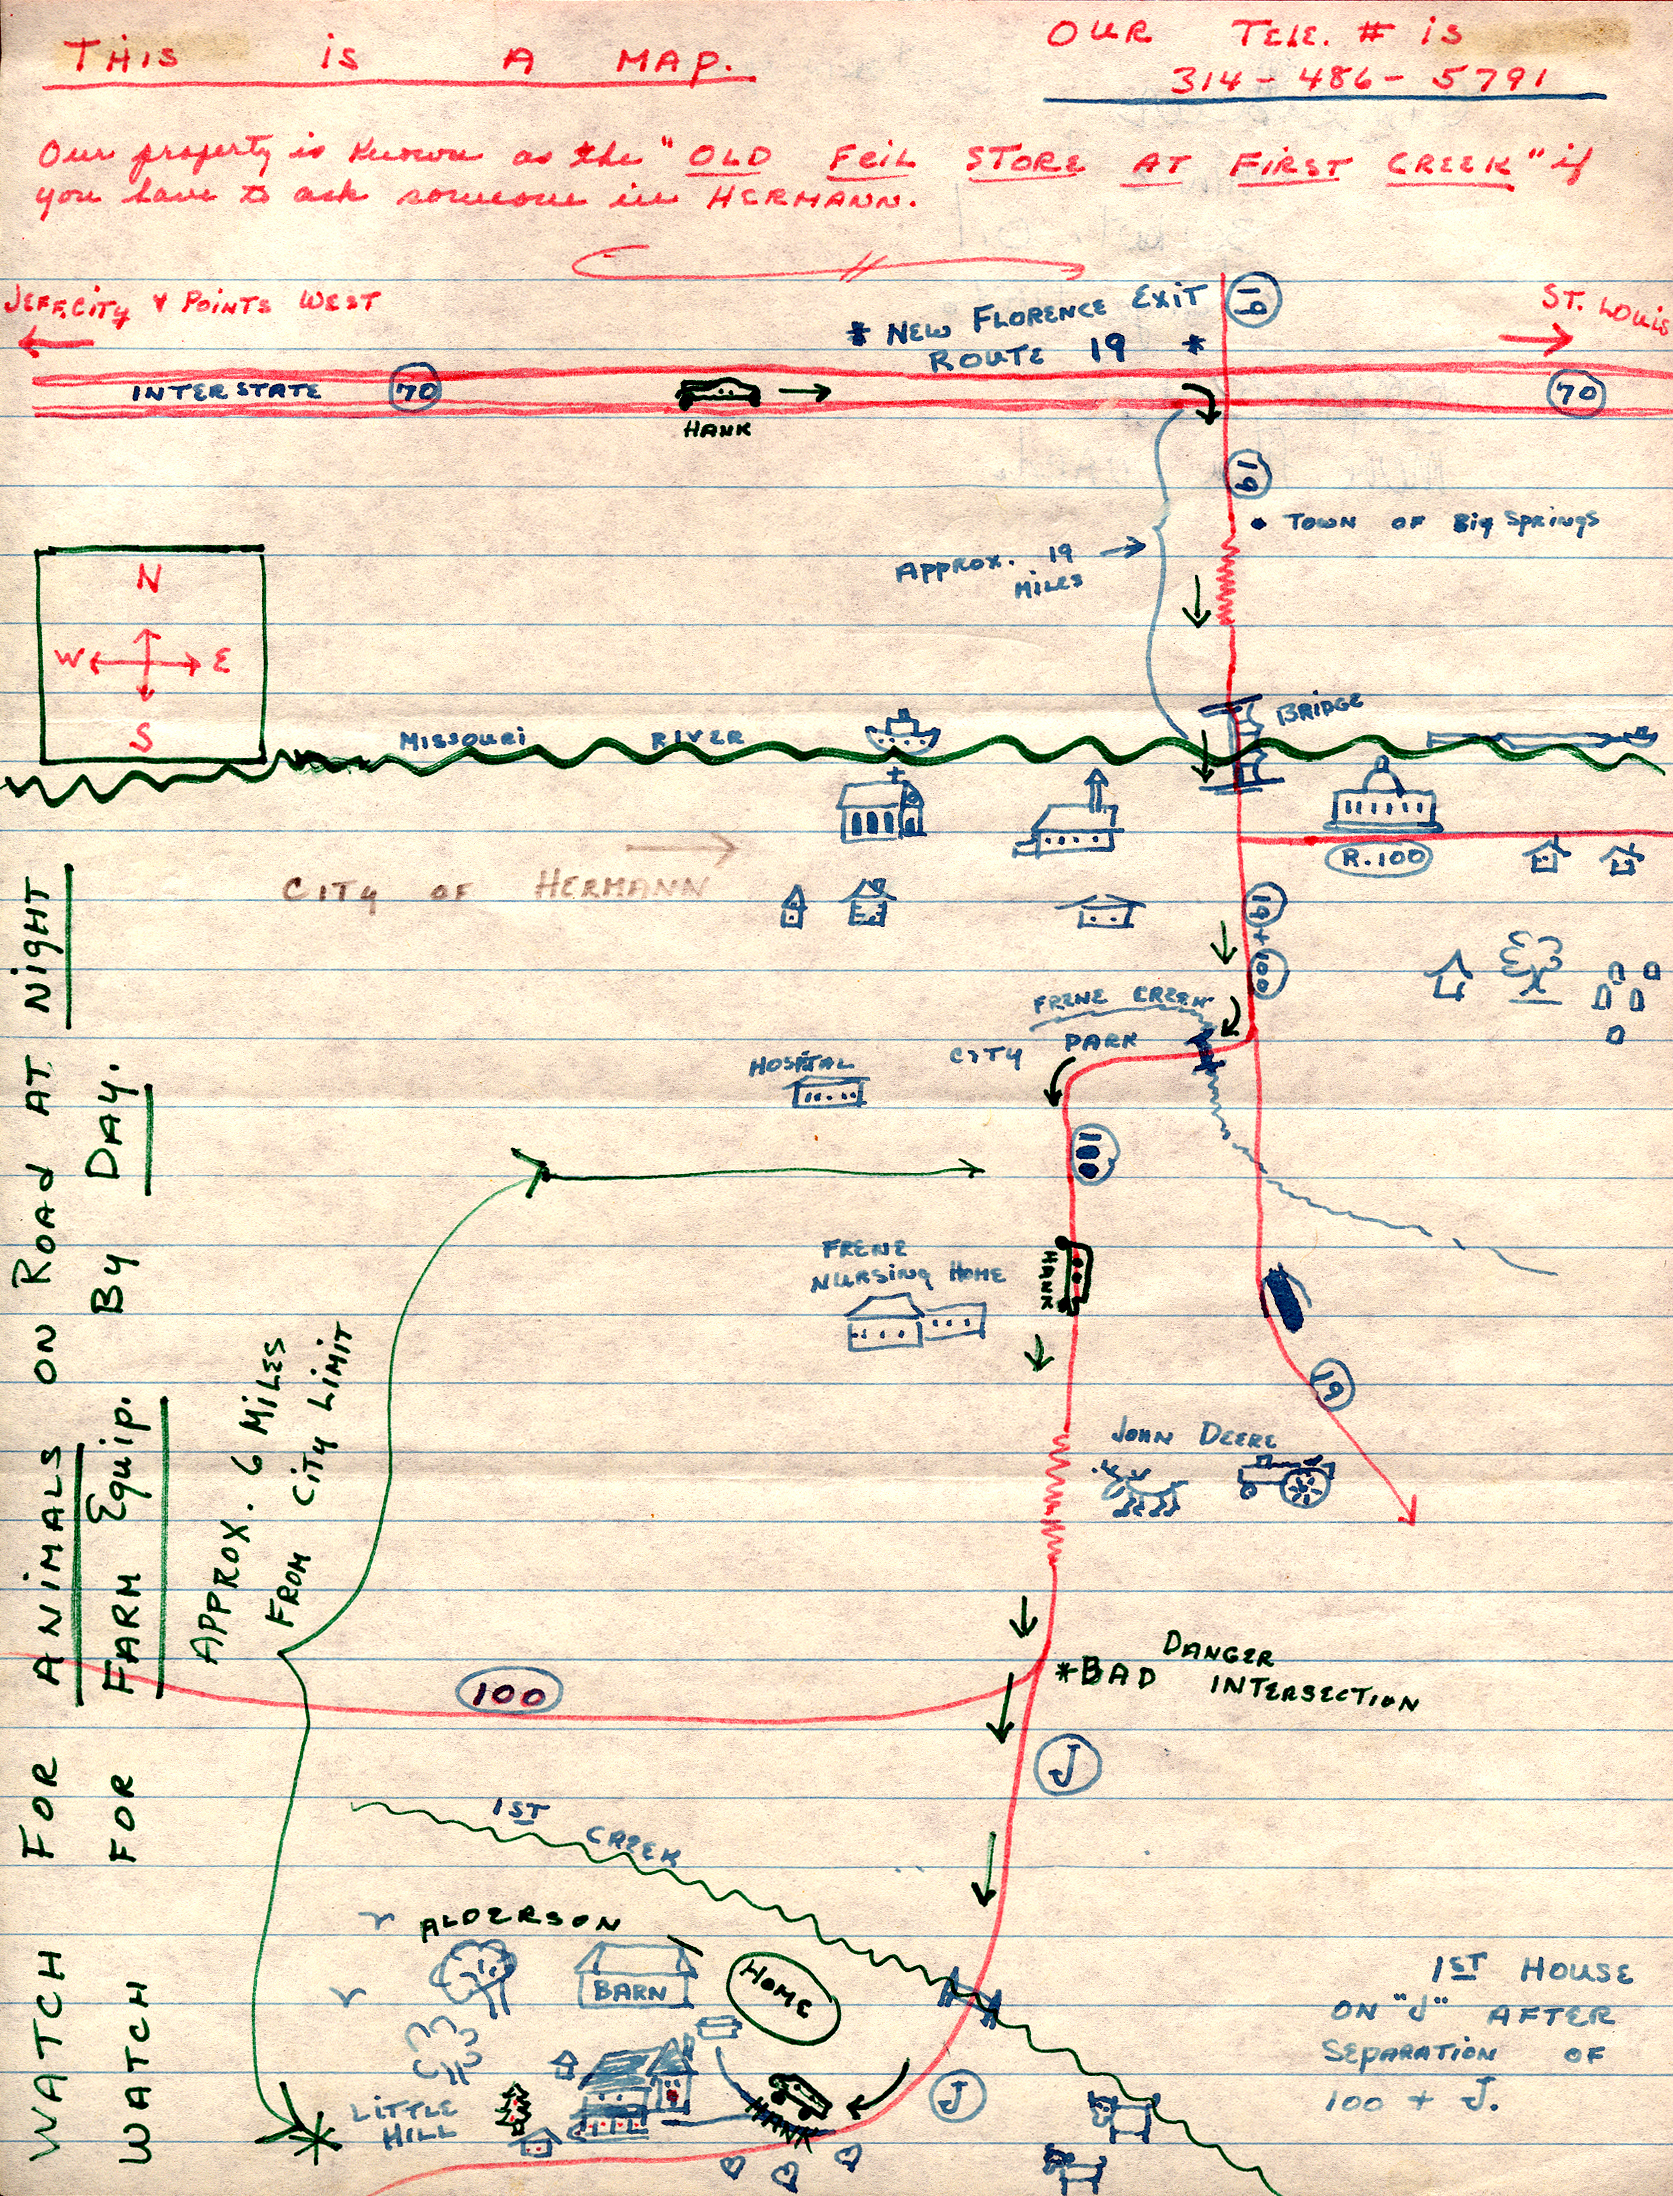 THIS IS A MAP.
OUR TELE. # IS
314-486-5791
Our property is known as the "OLD FEIL STORE AT FIRST CREEK" if
you have to ask someone in HERMANN.
JEFF.CITY & POINTS WEST
* NEW FLORENCE EXIT
ROUTE 19 *
19
ST. LOUIS
INTERSTATE 70
70
HANK
19
• TOWN OF BIG SPRINGS
APPROX. 19
MILES
N
W E
S
BRIDGE
MISSOURI RIVER
R.100
CITY OF HERMANN
19 + 100
FRENE CREEK
CITY PARK
HOSPITAL
100
FRENE
NURSING HOME
HANK
19
JOHN DEERE
APPROX. 6 MILES
FROM CITY LIMIT
WATCH FOR ANIMALS ON ROAD AT NIGHT
WATCH FOR FARM EQUIP. BY DAY.
DANGER
*BAD INTERSECTION
100
J
1ST CREEK
ALDERSON
BARN
HOME
1ST HOUSE
ON "J" AFTER
SEPARATION OF
100 + J.
J
HANK
LITTLE
HILL